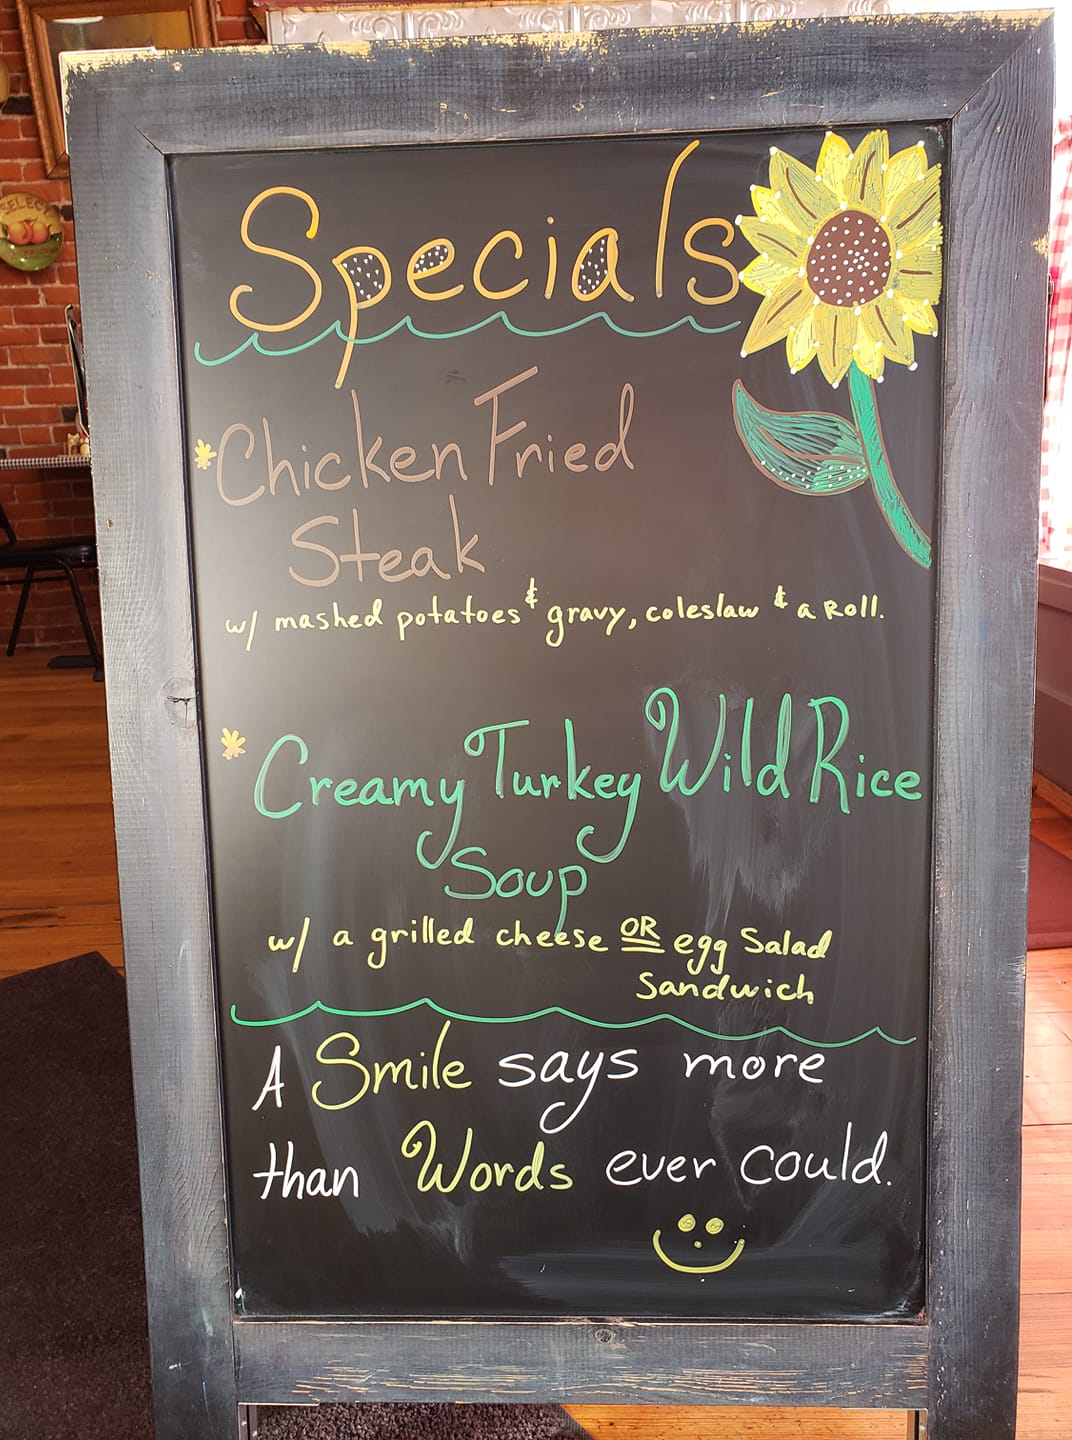 SELECT
Specials
*Chicken Fried
Steak
w/ mashed potatoes & gravy, coleslaw & a Roll.
*Creamy Turkey Wild Rice
Soup
w/ a grilled cheese OR egg Salad
Sandwich
A Smile says more
than Words ever could.